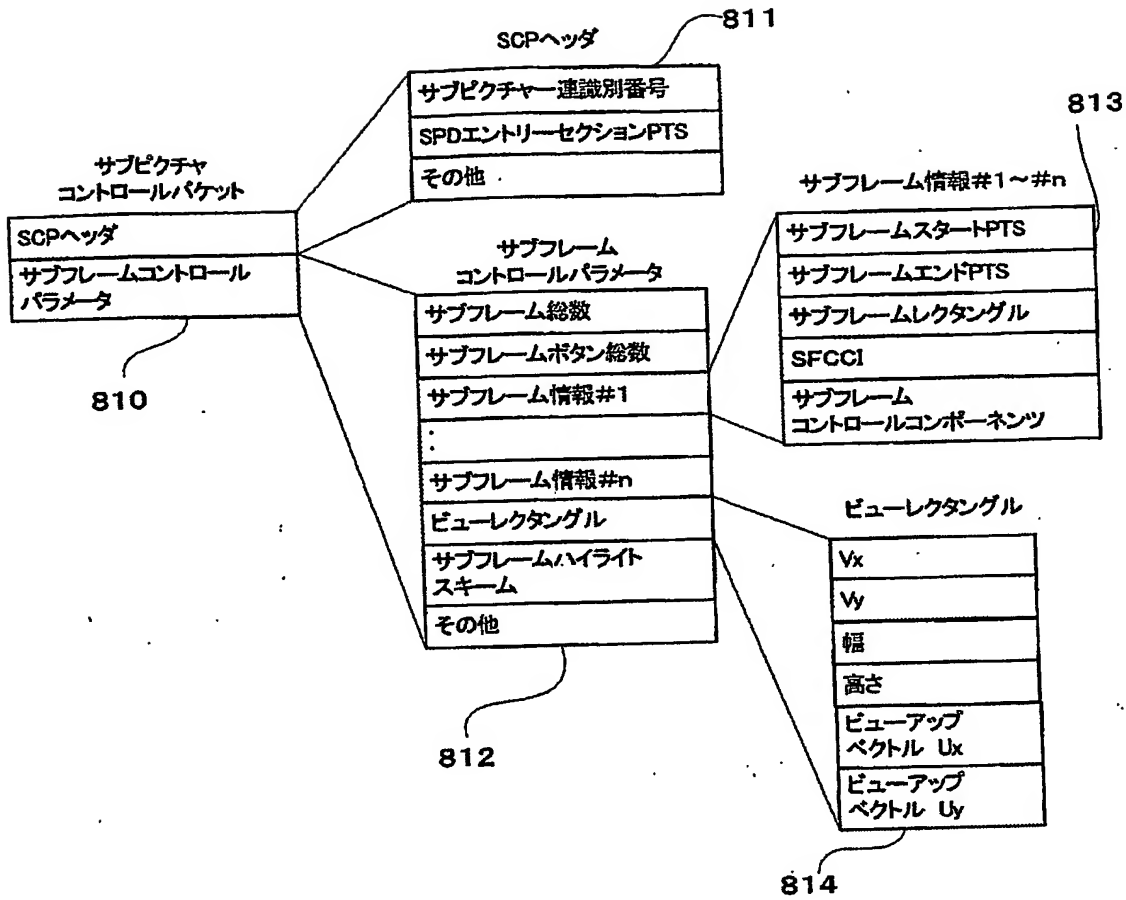 811
SCPヘッダ
サブピクチャー連識別番号
SPDエントリーセクションPTS
その他
813
サブピクチャ
コントロールパケット
SCPヘッダ
サブフレームコントロール
パラメータ
810
サブフレーム
コントロールパラメータ
サブフレーム総数
サブフレームボタン総数
サブフレーム情報#1
:
サブフレーム情報#n
ビューレクタングル
サブフレームハイライト
スキーム
その他
812
サブフレーム情報#1~#n
サブフレームスタートPTS
サブフレームエンドPTS
サブフレームレクタングル
SFCCI
サブフレーム
コントロールコンポーネンツ
ビューレクタングル
Vx
Vy
幅
高さ
ビューアップ
ベクトル Ux
ビューアップ
ベクトル Uy
814